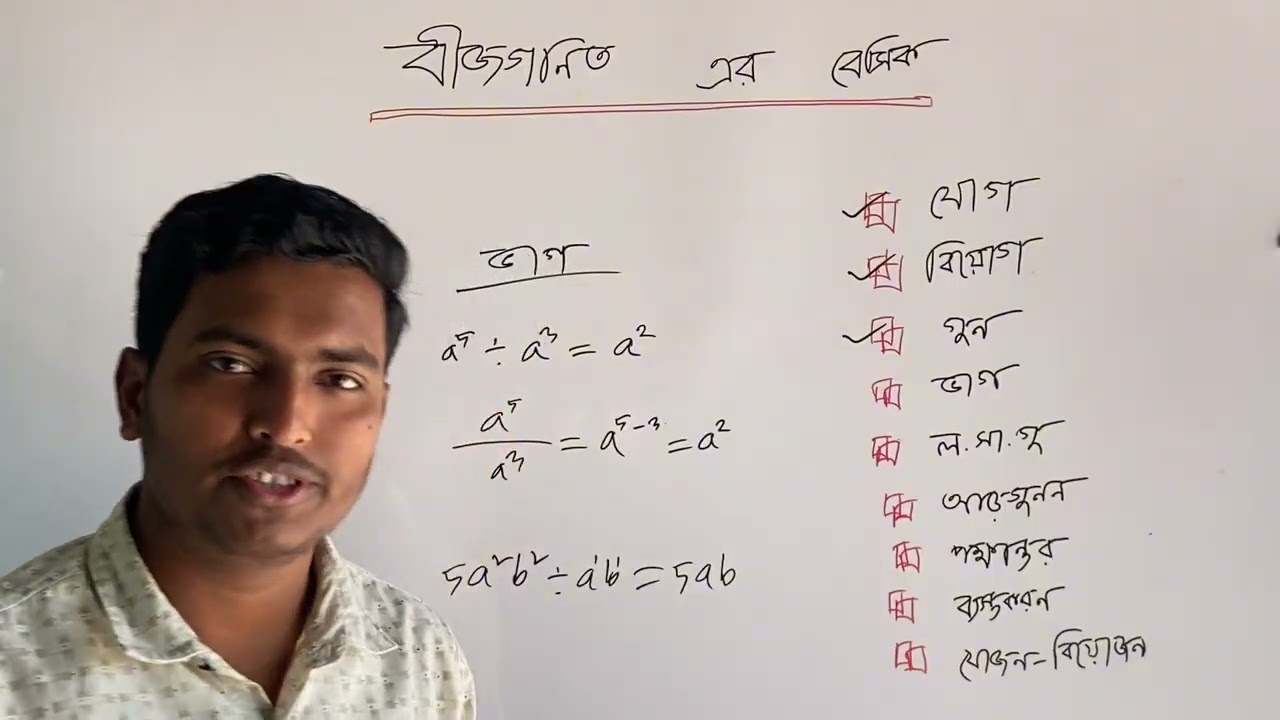 বীজগনিত এর বেসিক
ভাগ
a⁵ ÷ a³ = a²
a⁵/a³ = a⁵⁻³ = a²
5a²b² ÷ a¹b¹ = 5ab
যোগ
বিয়োগ
গুন
ভাগ
ল.সা.গু
আড়গুনন
পক্ষান্তর
ব্যস্তকরন
যোজন-বিয়োজন